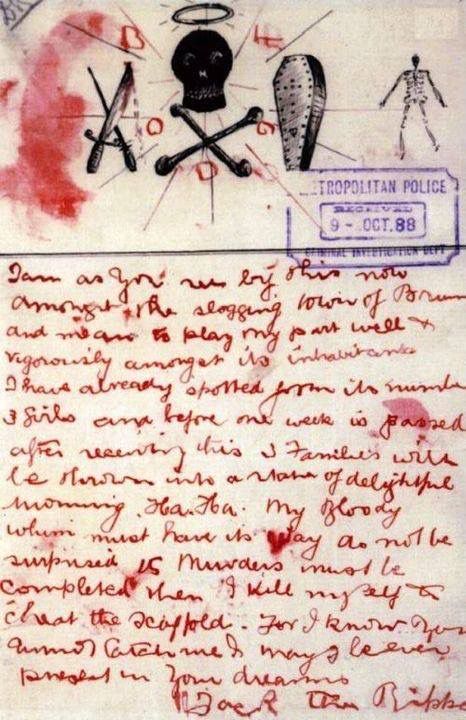 B F
O G
O
METROPOLITAN POLICE
RECEIVED
9 - OCT. 88
CRIMINAL INVESTIGATION DEPT
I am as you see by this now
amongst the slogging town of Brum
and mean to play my part well &
vigorously amongst its inhabitants
I have already spotted from its numbe
3 Girls and before one week is passed
after receiving this 3 Families will
be thrown into a state of delightful
mourning. Ha. Ha. My Bloody
whim must have its way do not be
surprised 15 Murders must be
completed then I kill myself to
cheat the scaffold. For I know you
cannot catch me & I may be ever
present in your dreams
Jack the Rippe